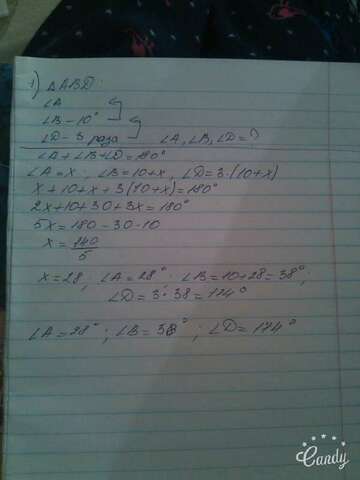 1) △ABD:
∠A
∠B - 10°
∠D - 3 раза ∠A, ∠B, ∠D = ?
∠A + ∠B + ∠D = 180°
∠A = x ; ∠B = 10 + x , ∠D = 3·(10 + x)
x + 10 + x + 3(10 + x) = 180°
2x + 10 + 30 + 3x = 180°
5x = 180 - 30 - 10
x = 140/5
x = 28 ; ∠A = 28° ; ∠B = 10 + 28 = 38° ;
∠D = 3 · 38 = 114°
∠A = 28° ; ∠B = 38° ; ∠D = 114°
Candy